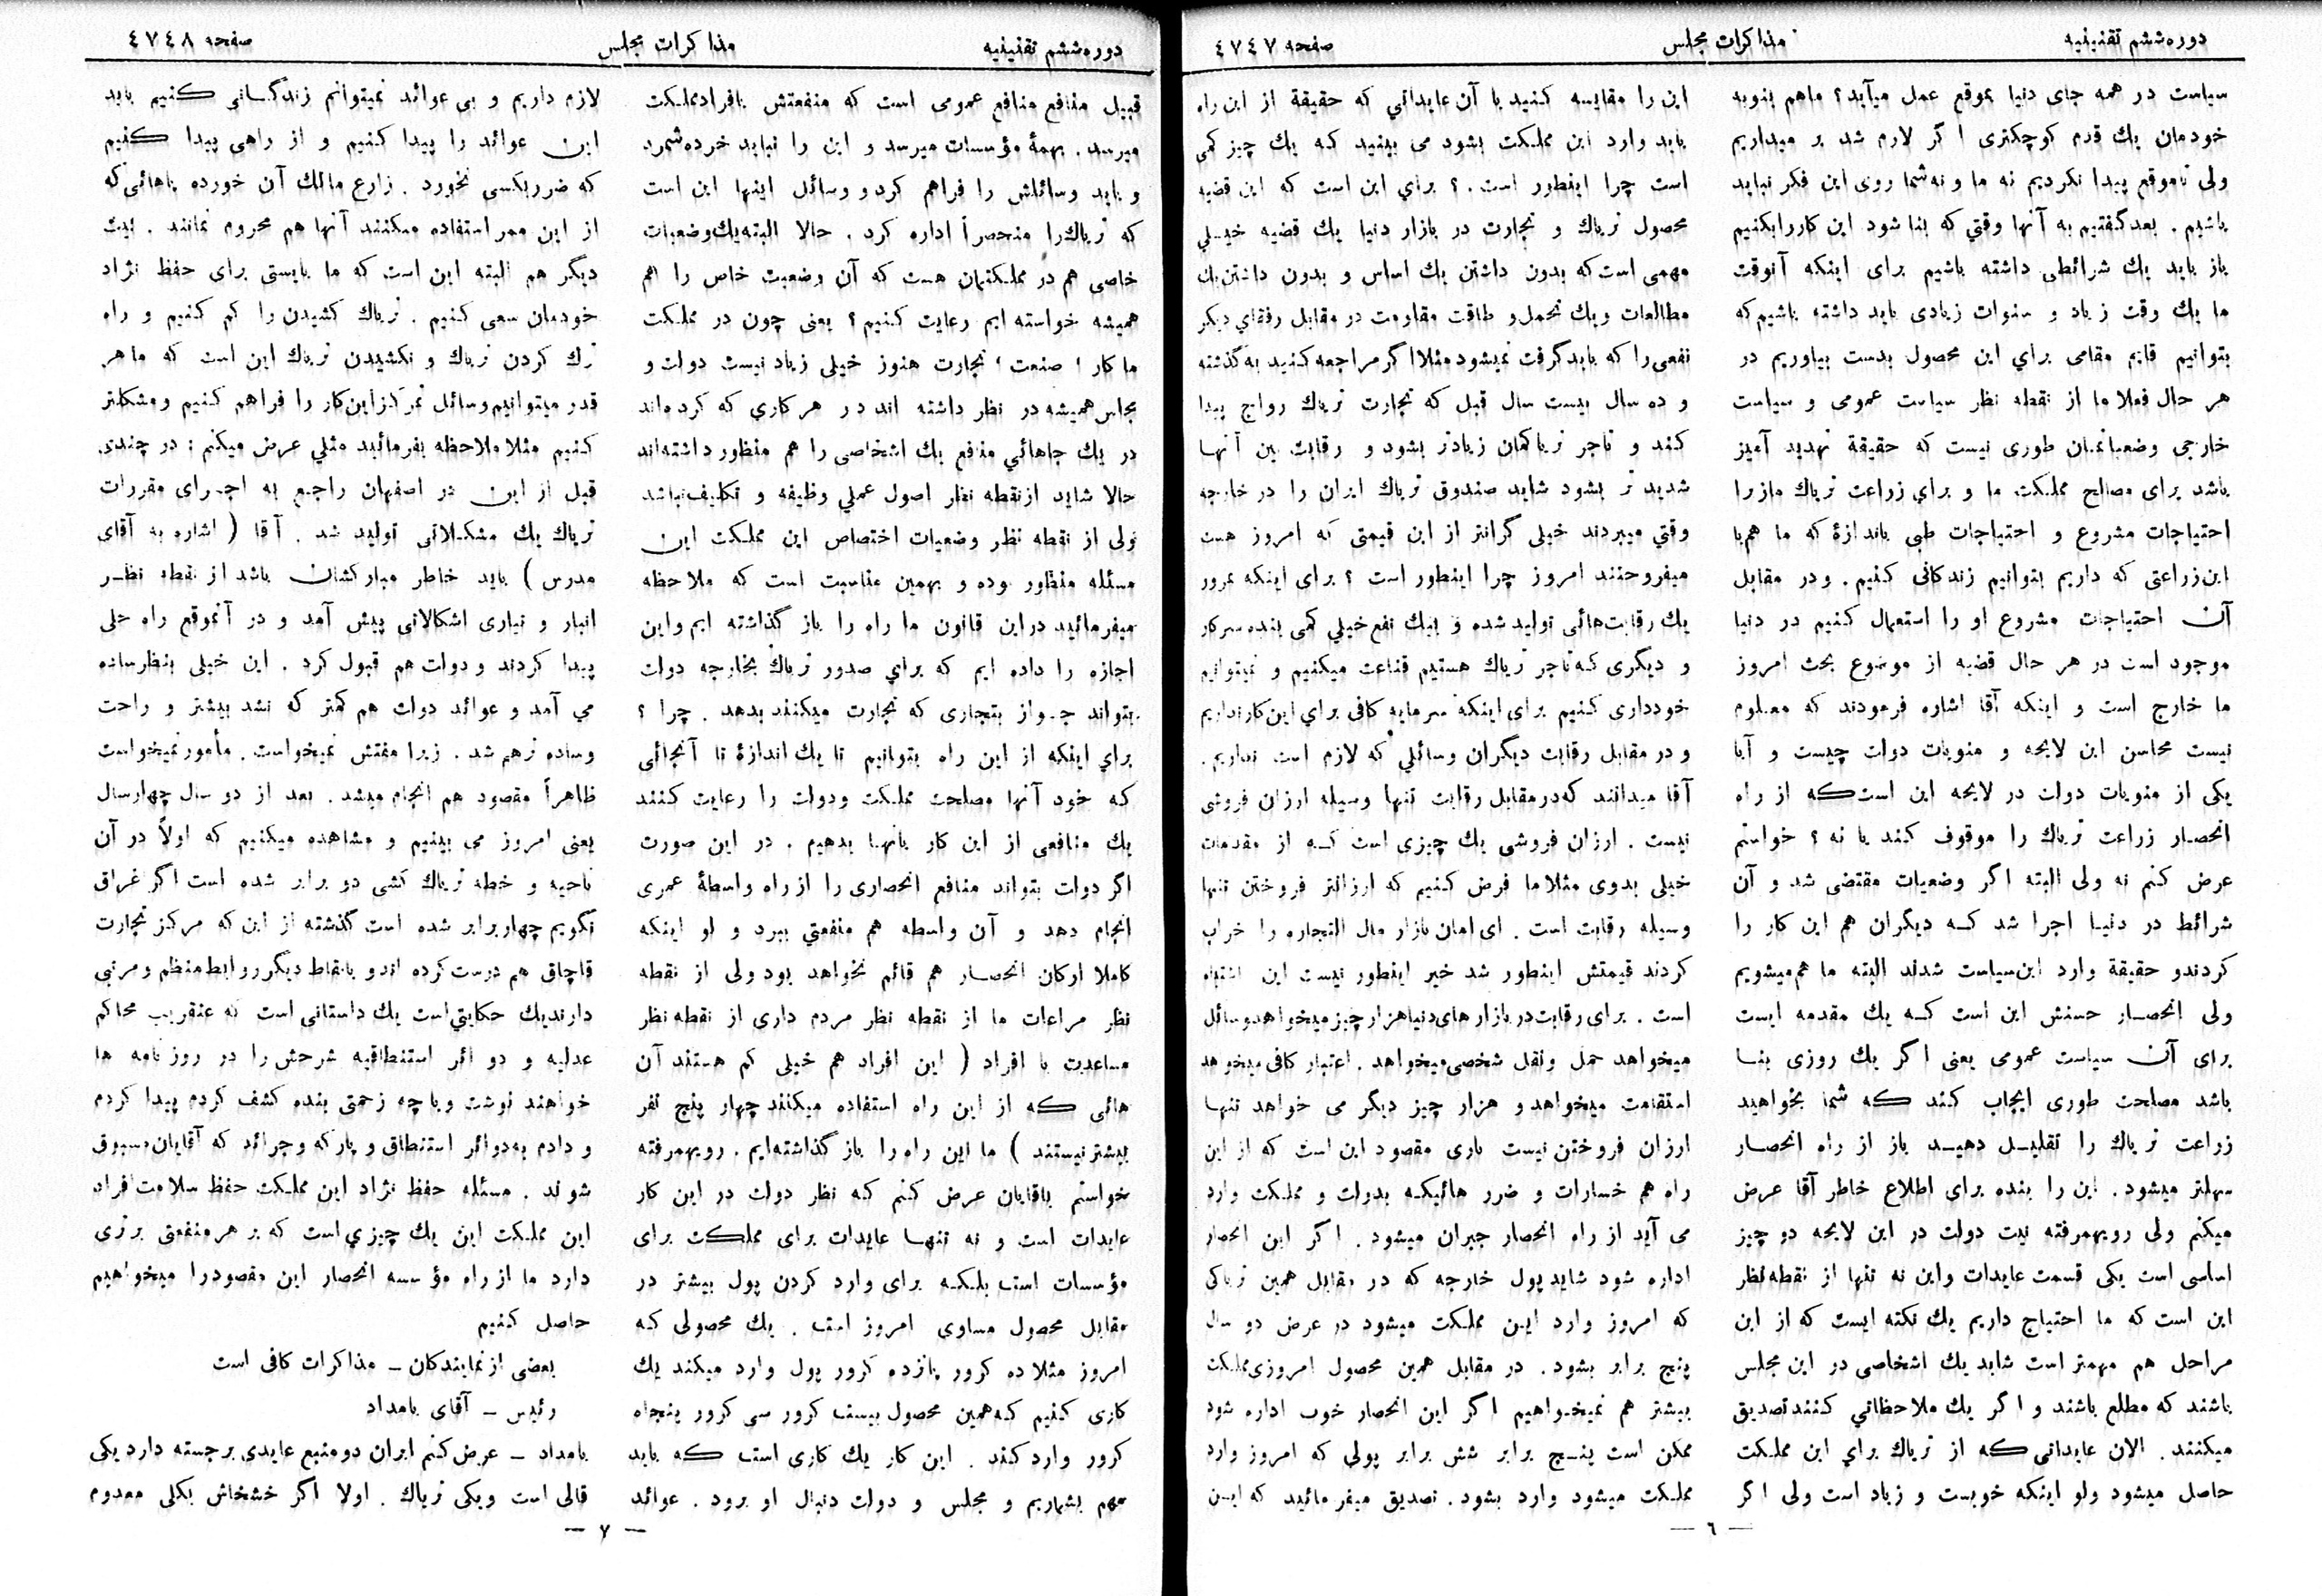 دوره ششم تقنینیه
مذاکرات مجلس
صفحه ٤٧٤٧
سیاست در همه جای دنیا بموقع عمل میآید؟ ماهم بنوبه
خودمان یك قدم کوچکتری اگر لازم شد بر میداریم
ولی تا موقع پیدا نکردیم نه ما و نه شما روی این فکر نباید
باشیم . بعد گفتیم به آنها وقتي که بنا شود این کار را بکنیم
باز باید یك شرائطی داشته باشیم برای اینکه آنوقت
ما یك وقت زیاد و سنوات زیادی باید داشته باشیم که
بتوانیم قایم مقامی براي این محصول بدست بیاوریم در
هر حال فعلا ما از نقطه نظر سیاست عمومی و سیاست
خارجی وضعیاتمان طوری نیست که حقیقة تهدید آمیز
باشد برای مصالح مملکت ما و براي زراعت تریاك ما زیرا
احتیاجات مشروع و احتیاجات طبی باندازهٔ که ما هم با
این زراعتی که داریم بتوانیم زندکانی کنیم . و در مقابل
آن احتیاجات مشروع او را استعمال کنیم در دنیا
موجود است در هر حال قضیه از موضوع بحث امروز
ما خارج است و اینکه آقا اشاره فرمودند که معلوم
نیست محاسن این لایحه و منویات دولت چیست و آیا
یکی از منویات دولت در لایحه این است که از راه
انحصار زراعت تریاك را موقوف کند یا نه ؟ خواستم
عرض کنم نه ولی البته اگر وضعیات مقتضی شد و آن
شرائط در دنیا اجرا شد که دیگران هم این کار را
کردند و حقیقة وارد این سیاست شدند البته ما هم میشویم
ولی انحصار حسنش این است که یك مقدمه ایست
برای آن سیاست عمومی یعنی اگر یك روزی بنا
باشد مصلحت طوری ایجاب کند که شما بخواهید
زراعت تریاك را تقلیل دهید باز از راه انحصار
سهلتر میشود . این را بنده برای اطلاع خاطر آقا عرض
میکنم ولی رویهمرفته نیت دولت در این لایحه دو چیز
اساسی است یکی قسمت عایدات و این نه تنها از نقطه نظر
این است که ما احتیاج داریم یك نکته ایست که از این
مراحل هم مهمتر است شاید یك اشخاصی در این مجلس
باشند که مطلع باشند و اگر یك ملاحظاتي کنند تصدیق
میکنند . الان عایداتی که از تریاك براي این مملکت
حاصل میشود ولو اینکه خوبست و زیاد است ولی اگر
این را مقایسه کنید با آن عایداتي که حقیقة از این راه
باید وارد این مملکت بشود می بینید که یك چیز کمی
است چرا اینطور است . ؟ براي این است که این قضیه
محصول تریاك و تجارت در بازار دنیا یك قضیه خیلي
مهمی است که بدون داشتن یك اساس و بدون داشتن یك
مطالعات و یك تحمل و طاقت مقاومت در مقابل رفقاي دیگر
نفعی را که باید گرفت نمیشود مثلا اگر مراجعه کنید به گذشته
و ده سال بیست سال قبل که تجارت تریاك رواج پیدا
کند و تاجر تریاکمان زیادتر بشود و رقابت بین آنها
شدید تر بشود شاید صندوق تریاك ایران را در خارجه
وقتي میبردند خیلی گرانتر از این قیمتی که امروز هست
میفروختند امروز چرا اینطور است ؟ برای اینکه بمرور
یك رقابت هائی تولید شده و بیك نفع خیلي کمی بنده سرکار
و دیگری که تاجر تریاك هستیم قناعت میکنیم و نمیتوانیم
خودداری کنیم برای اینکه سرمایه کافی براي این کار نداریم
و در مقابل رقابت دیگران وسائلي که لازم است نداریم .
آقا میدانند که در مقابل رقابت تنها وسیله ارزان فروشی
نیست . ارزان فروشی یك چیزی است که از مقدمات
خیلی بدوی مثلا ما فرض کنیم که ارزانتر فروختن تنها
وسیله رقابت است . ای امان بازار مال التجاره را خراب
کردند قیمتش اینطور شد خیر اینطور نیست این اشتباه
است . برای رقابت در بازار های دنیا هزار چیز میخواهد وسائل
میخواهد حمل و نقل شخصی میخواهد . اعتبار کافی میخواهد
استقامت میخواهد و هزار چیز دیگر می خواهد تنها
ارزان فروختن نیست باری مقصود این است که از این
راه هم خسارات و ضرر هائیکه بدولت و مملکت وارد
می آید از راه انحصار جبران میشود . اگر این انحصار
اداره شود شاید پول خارجه که در مقابل همین تریاکی
که امروز وارد این مملکت میشود در عرض دو سال
پنج برابر بشود . در مقابل همین محصول امروزی مملکت
بیشتر هم نمیخواهیم اگر این انحصار خوب اداره شود
ممکن است پنج برابر شش برابر پولی که امروز وارد
مملکت میشود وارد بشود . تصدیق میفرمائید که این
— ٦ —
دوره ششم تقنینیه
مذاکرات مجلس
صفحه ٤٧٤٨
قبیل منافع منافع عمومی است که منفعتش بافراد مملکت
میرسد . بهمهٔ مؤسسات میرسد و این را نباید خرده شمرد
و باید وسائلش را فراهم کرد و وسائل اینها این است
که تریاك را منحصراً اداره کرد . حالا البته یك وضعیات
خاصی هم در مملکتمان هست که آن وضعیت خاص را هم
همیشه خواسته ایم رعایت کنیم ؟ یعنی چون در مملکت
ما کار ، صنعت ، تجارت هنوز خیلی زیاد نیست دولت و
مجلس همیشه در نظر داشته اند در هر کاري که کرده اند
در یك جاهائي منافع یك اشخاصی را هم منظور داشته اند
حالا شاید از نقطه نظر اصول عملي وظیفه و تکلیف نباشد
ولی از نقطه نظر وضعیات اختصاص این مملکت این
مسئله منظور بوده و بهمین مناسبت است که ملاحظه
میفرمائید در این قانون ما راه را باز گذاشته ایم و این
اجازه را داده ایم که براي صدور تریاك بخارجه دولت
بتواند جواز بتجاری که تجارت میکنند بدهد . چرا ؟
براي اینکه از این راه بتوانیم تا یك اندازهٔ تا آنجائی
که خود آنها مصلحت مملکت و دولت را رعایت کنند
یك منافعی از این کار بانها بدهیم . در این صورت
اگر دولت بتواند منافع انحصاری را از راه واسطهٔ عمری
انجام دهد و آن واسطه هم منفعتي ببرد و لو اینکه
کاملا ارکان انحصار هم قائم نخواهد بود ولی از نقطه
نظر مراعات ما از نقطه نظر مردم داری از نقطه نظر
مساعدت با افراد ( این افراد هم خیلی کم هستند آن
هائی که از این راه استفاده میکنند چهار پنج نفر
بیشتر نیستند ) ما این راه را باز گذاشته ایم . رویهمرفته
خواستم باقایان عرض کنم که نظر دولت در این کار
عایدات است و نه تنها عایدات برای مملکت برای
مؤسسات است بلکه برای وارد کردن پول بیشتر در
مقابل محصول مساوی امروز است . یك محصولی که
امروز مثلا ده کرور پانزده کرور پول وارد میکند یك
کاری کنیم که همین محصول بیست کرور سی کرور پنجاه
کرور وارد کند . این کار یك کاری است که باید
مهم بشماریم و مجلس و دولت دنبال او برود . عوائد
لازم داریم و بی عوائد نمیتوانم زندگانی کنیم باید
این عوائد را پیدا کنیم و از راهی پیدا کنیم
که ضرر بکسی نخورد . زارع مالك آن خورده پاهائی که
از این ممر استفاده میکنند آنها هم محروم نمانند . نیت
دیگر هم البته این است که ما بایستی برای حفظ نژاد
خودمان سعی کنیم . تریاك کشیدن را کم کنیم و راه
ترك کردن تریاك و نکشیدن تریاك این است که ما هر
قدر میتوانیم وسائل تمرکز این کار را فراهم کنیم و مشکلتر
کنیم مثلا ملاحظه بفرمائید مثلي عرض میکنم : در چندی
قبل از این در اصفهان راجع به اجرای مقررات
تریاك یك مشکلاتی تولید شد . آقا ( اشاره به آقای
مدرس ) باید خاطر مبارکشان باشد از نقطه نظر
انبار و نیاری اشکالاتی پیش آمد و در آنموقع راه حلی
پیدا کردند و دولت هم قبول کرد . این خیلی بنظر ساده
می آمد و عوائد دولت هم کمتر که نشد بیشتر و راحت
و ساده تر هم شد . زیرا مفتش نمیخواست . مأمور نمیخواست
ظاهراً مقصود هم انجام میشد . بعد از دو سال چهار سال
یعنی امروز می بینیم و مشاهده میکنیم که اولاً در آن
ناحیه و خطه تریاك کشی دو برابر شده است اگر غراق
نگویم چهار برابر شده است گذشته از این که مرکز تجارت
قاچاق هم درست کرده اند و بانقاط دیگر روابط منظم و مرتبی
دارند یك حکایتي است یك داستانی است که عنقریب محاکم
عدلیه و دوائر استنطاقیه شرحش را در روزنامه ها
خواهند نوشت و با چه زحمتی بنده کشف کردم پیدا کردم
و دادم به دوائر استنطاق و پارکه و جرائد که آقایان مسبوق
شوند . مسئله حفظ نژاد این مملکت حفظ سلامت افراد
این مملکت این یك چیزي است که بر هر منفعتی برتری
دارد ما از راه مؤسسه انحصار این مقصود را میخواهیم
حاصل کنیم
بعضی از نمایندکان ـ مذاکرات کافی است
رئیس ـ آقای بامداد
بامداد ـ عرض کنم ایران دو منبع عایدی برجسته دارد یکی
قالی است و یکی تریاك . اولا اگر خشخاش بکلی معدوم
— ٧ —